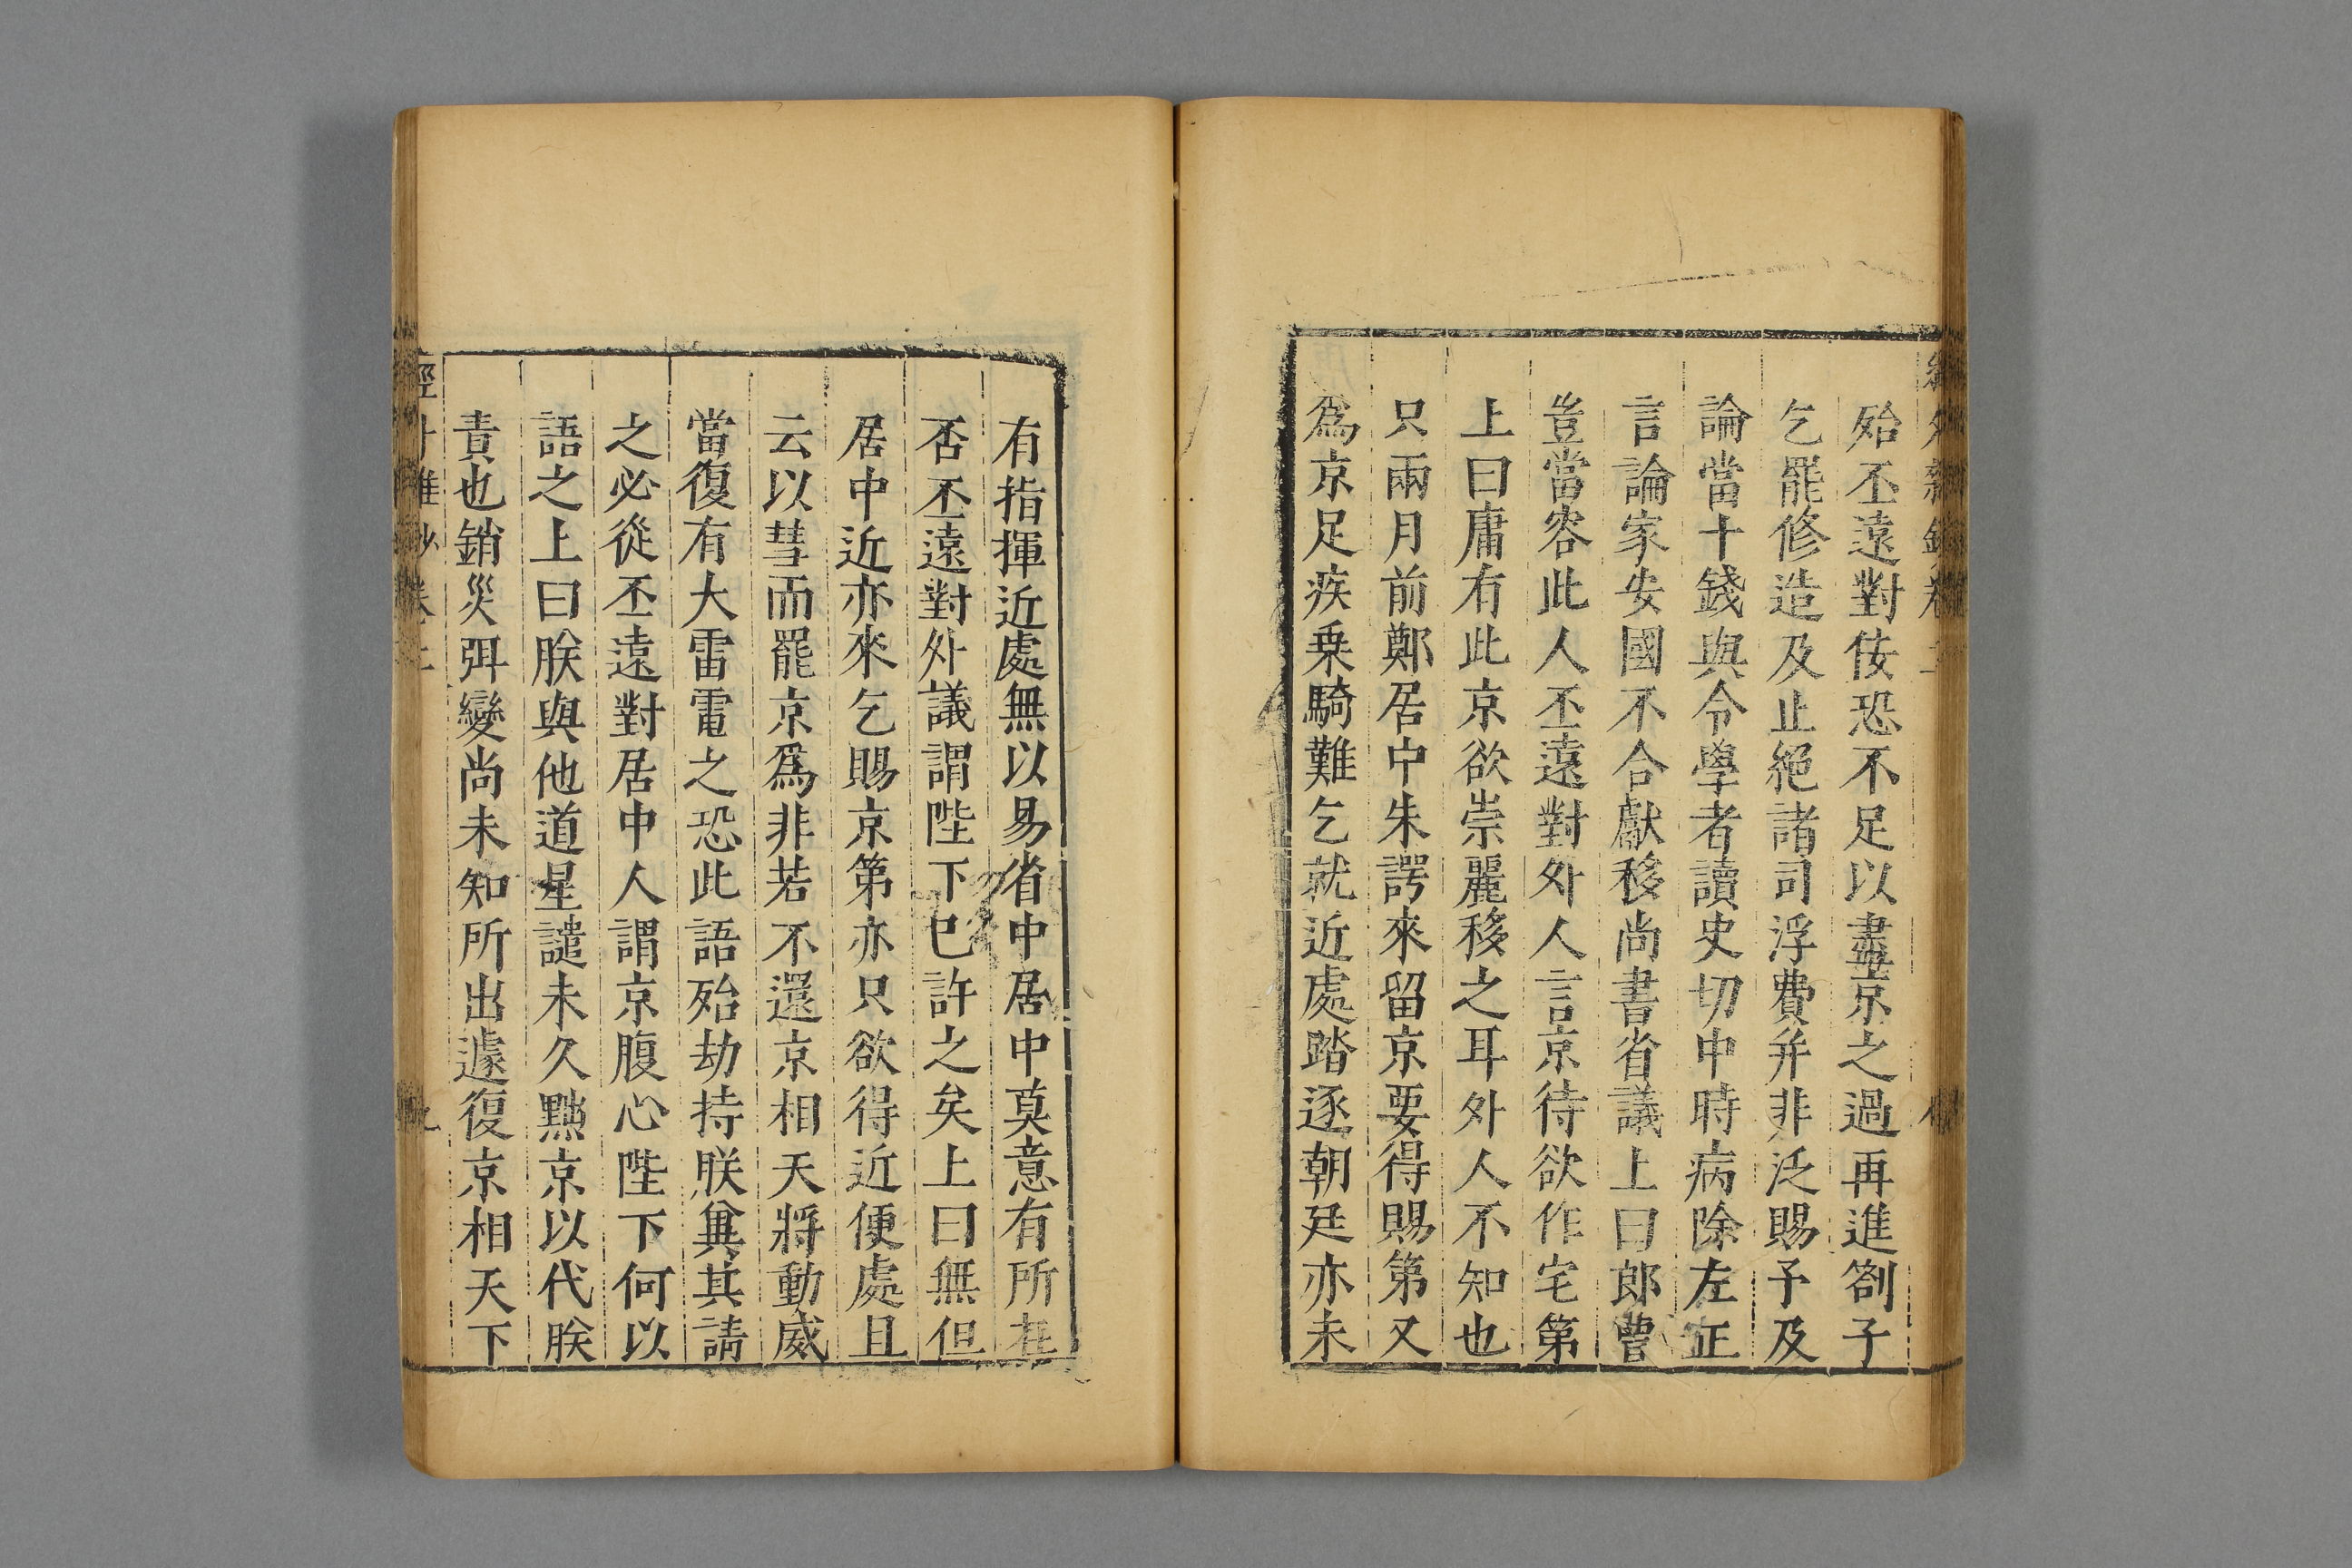 殆丕遠對侫恐不足以盡京之過再進劄子
乞罷修造及止絕諸司浮費并非泛賜予及
論當十錢與令學者讀史切中時病除左正
言論家安國不合獻移尚書省議上曰郎曹
豈當容此人丕遠對外人言京待欲作宅第
上曰庸有此京欲崇麗移之耳外人不知也
只兩月前鄭居中朱諤來留京要得賜第又
爲京足疾乗騎難乞就近處踏逐朝廷亦未
有指揮近處無以易省中居中莫意有所在
否丕遠對外議謂陛下已許之矣上曰無但
居中近亦來乞賜京第亦只欲得近便處且
云以彗而罷京爲非若不還京相天將動威
當復有大雷電之恐此語殆劫持朕兾其請
之必從丕遠對居中人謂京腹心陛下何以
語之上曰朕與他道星譴未久黜京以代朕
責也銷災弭變尚未知所出遽復京相天下